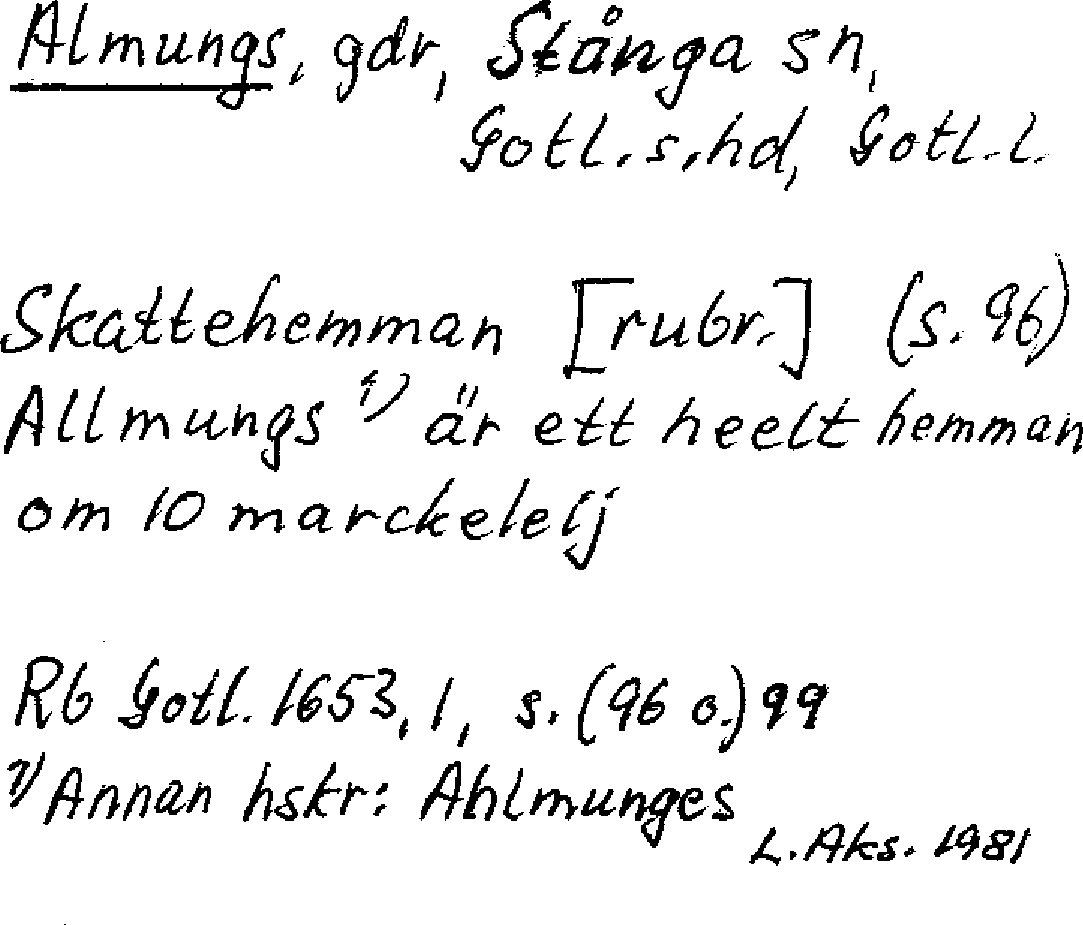 Almungs, gdr, Stånga sn,
Gotl. s. hd, Gotl. l.
Skattehemman [rubr.] (s. 96)
Allmungs 1) är ett heelt hemman
om 10 marckeleij
Rb Gotl. 1653, 1, s. (96 o.) 99
1) Annan hskr: Ahlmunges
L. Aks. 1981